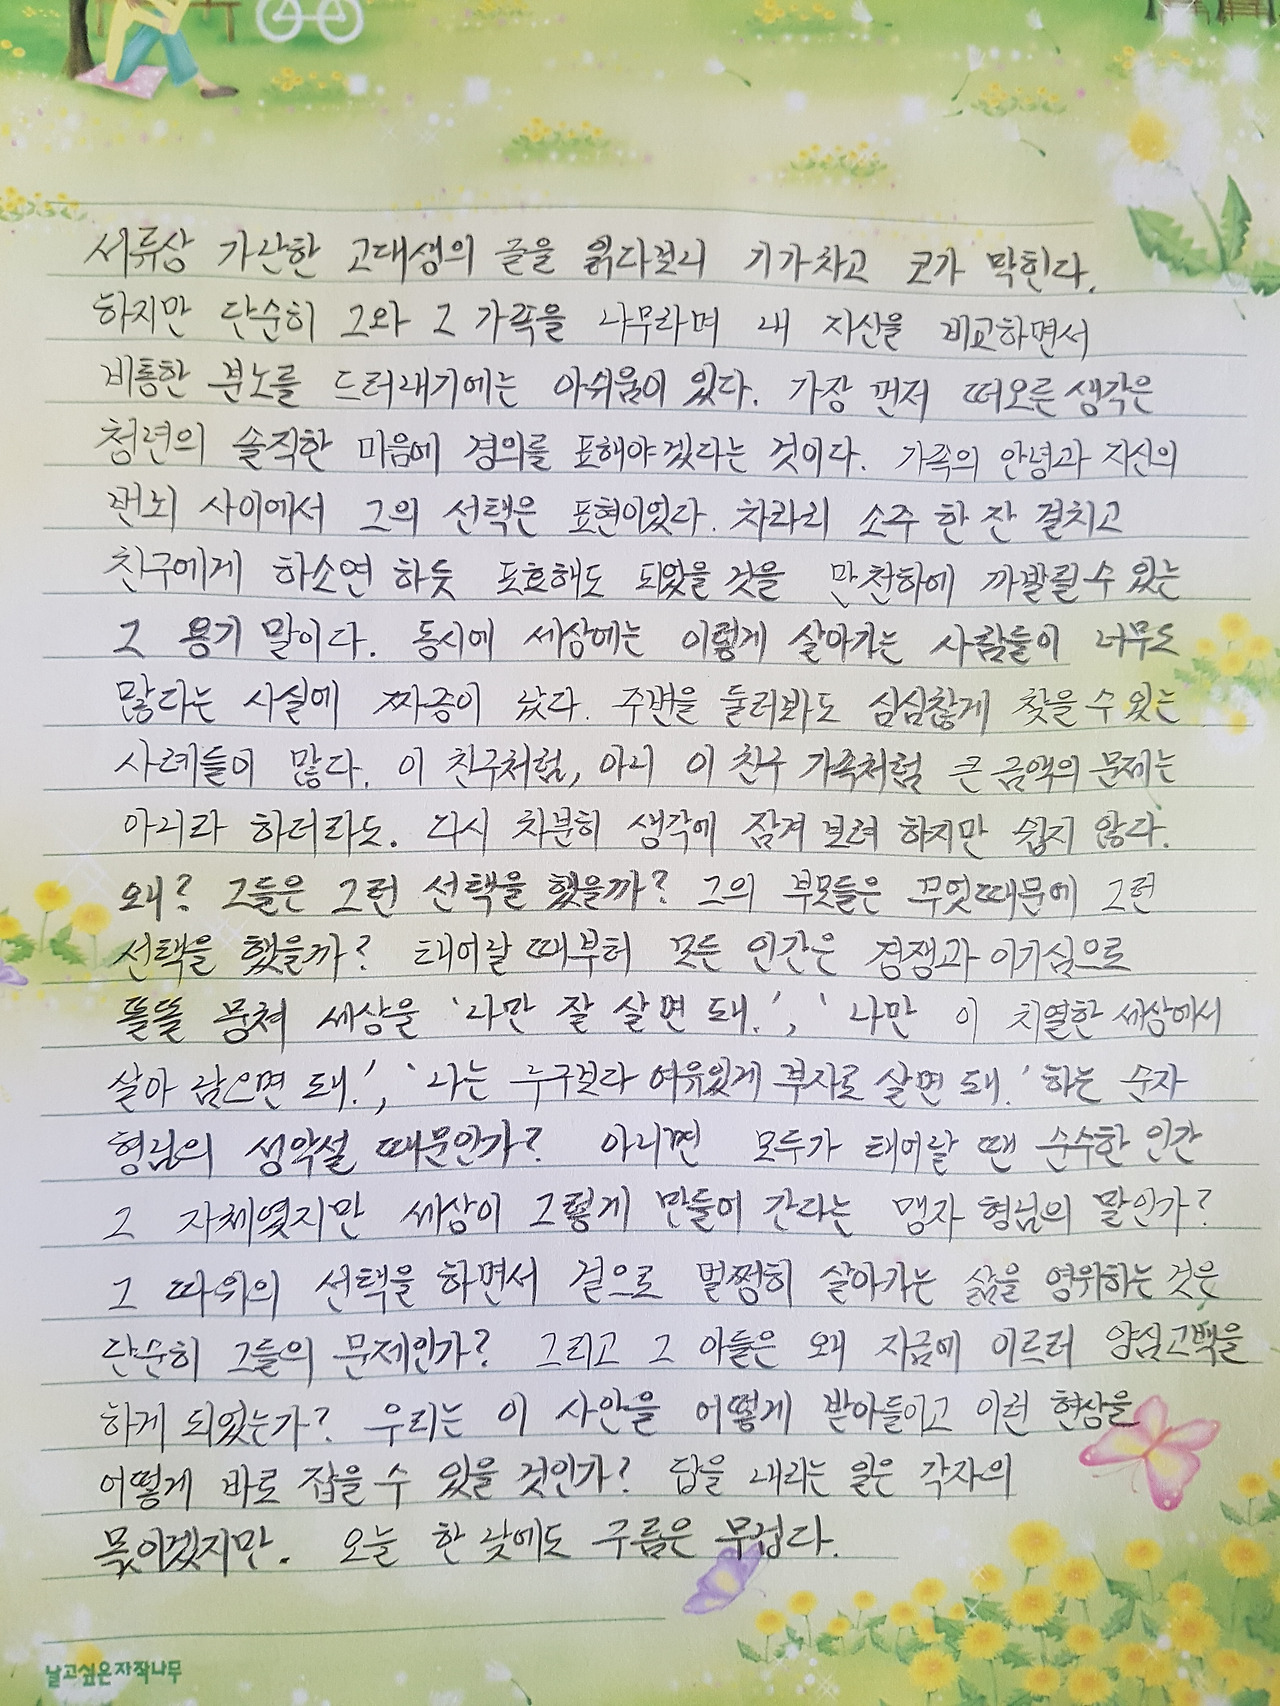 서류상 가난한 고대생의 글을 읽다보니 기가차고 코가 막힌다.
하지만 단순히 그와 그 가족을 나무라며 내 자신을 비교하면서
비통한 분노를 드러내기에는 아쉬움이 있다. 가장 먼저 떠오른 생각은
청년의 솔직한 마음에 경의를 표해야겠다는 것이다. 가족의 안녕과 자신의
번뇌 사이에서 그의 선택은 표현이었다. 차라리 소주 한 잔 걸치고
친구에게 하소연 하듯 표호해도 되었을 것을 만천하에 까발릴 수 있는
그 용기 말이다. 동시에 세상에는 이렇게 살아가는 사람들이 너무도
많다는 사실에 짜증이 났다. 주변을 둘러봐도 심심찮게 찾을 수 있는
사례들이 많다. 이 친구처럼, 아니 이 친구 가족처럼 큰 금액의 문제는
아니라 하더라도. 다시 차분히 생각에 잠겨 보려 하지만 쉽지 않다.
왜? 그들은 그런 선택을 했을까? 그의 부모들은 무엇때문에 그런
선택을 했을까? 태어날 때부터 모든 인간은 경쟁과 이기심으로
똘똘 뭉쳐 세상을 '나만 잘 살면 돼.', '나만 이 치열한 세상에서
살아 남으면 돼.', '나는 누구보다 여유있게 부자로 살면 돼.' 하는 순자
형님의 성악설 때문인가? 아니면 모두가 태어날 땐 순수한 인간
그 자체였지만 세상이 그렇게 만들어 간다는 맹자 형님의 말인가?
그 따위의 선택을 하면서 겉으로 멀쩡히 살아가는 삶을 영위하는 것은
단순히 그들의 문제인가? 그리고 그 아들은 왜 지금에 이르러 양심고백을
하게 되었는가? 우리는 이 사안을 어떻게 받아들이고 이런 현상을
어떻게 바로 잡을 수 있을 것인가? 답을 내리는 일은 각자의
몫이겠지만. 오늘 한 낮에도 구름은 무겁다.
날고싶은자작나무